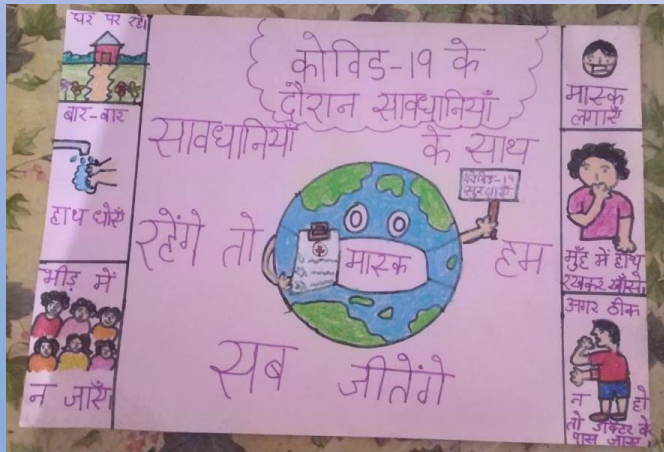 घर पर रहें।
बार-बार
हाथ धोएँ
भीड़ में
न जाएँ।
कोविड-19 के
दौरान सावधानियाँ
सावधानियाँ के साथ
रहेंगे तो हम
सब जीतेंगे
मास्क
कोविड-19
मास्क
लगाएँ
मुँह में हाथ
रखकर खाँसे
अगर ठीक
न हो
तो डॉक्टर के
पास जाएँ